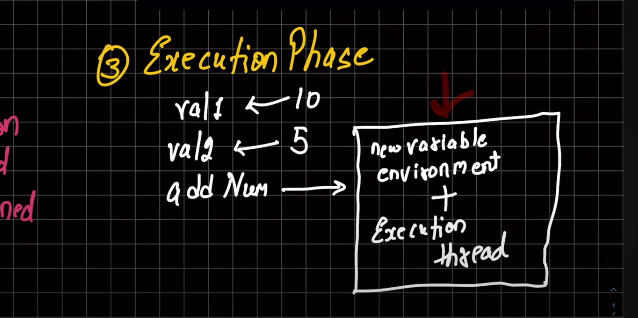 ③ Execution Phase
on
d
ned
val1 ← 10
val2 ← 5
add Num →
new variable
environment
+
Execution
thread